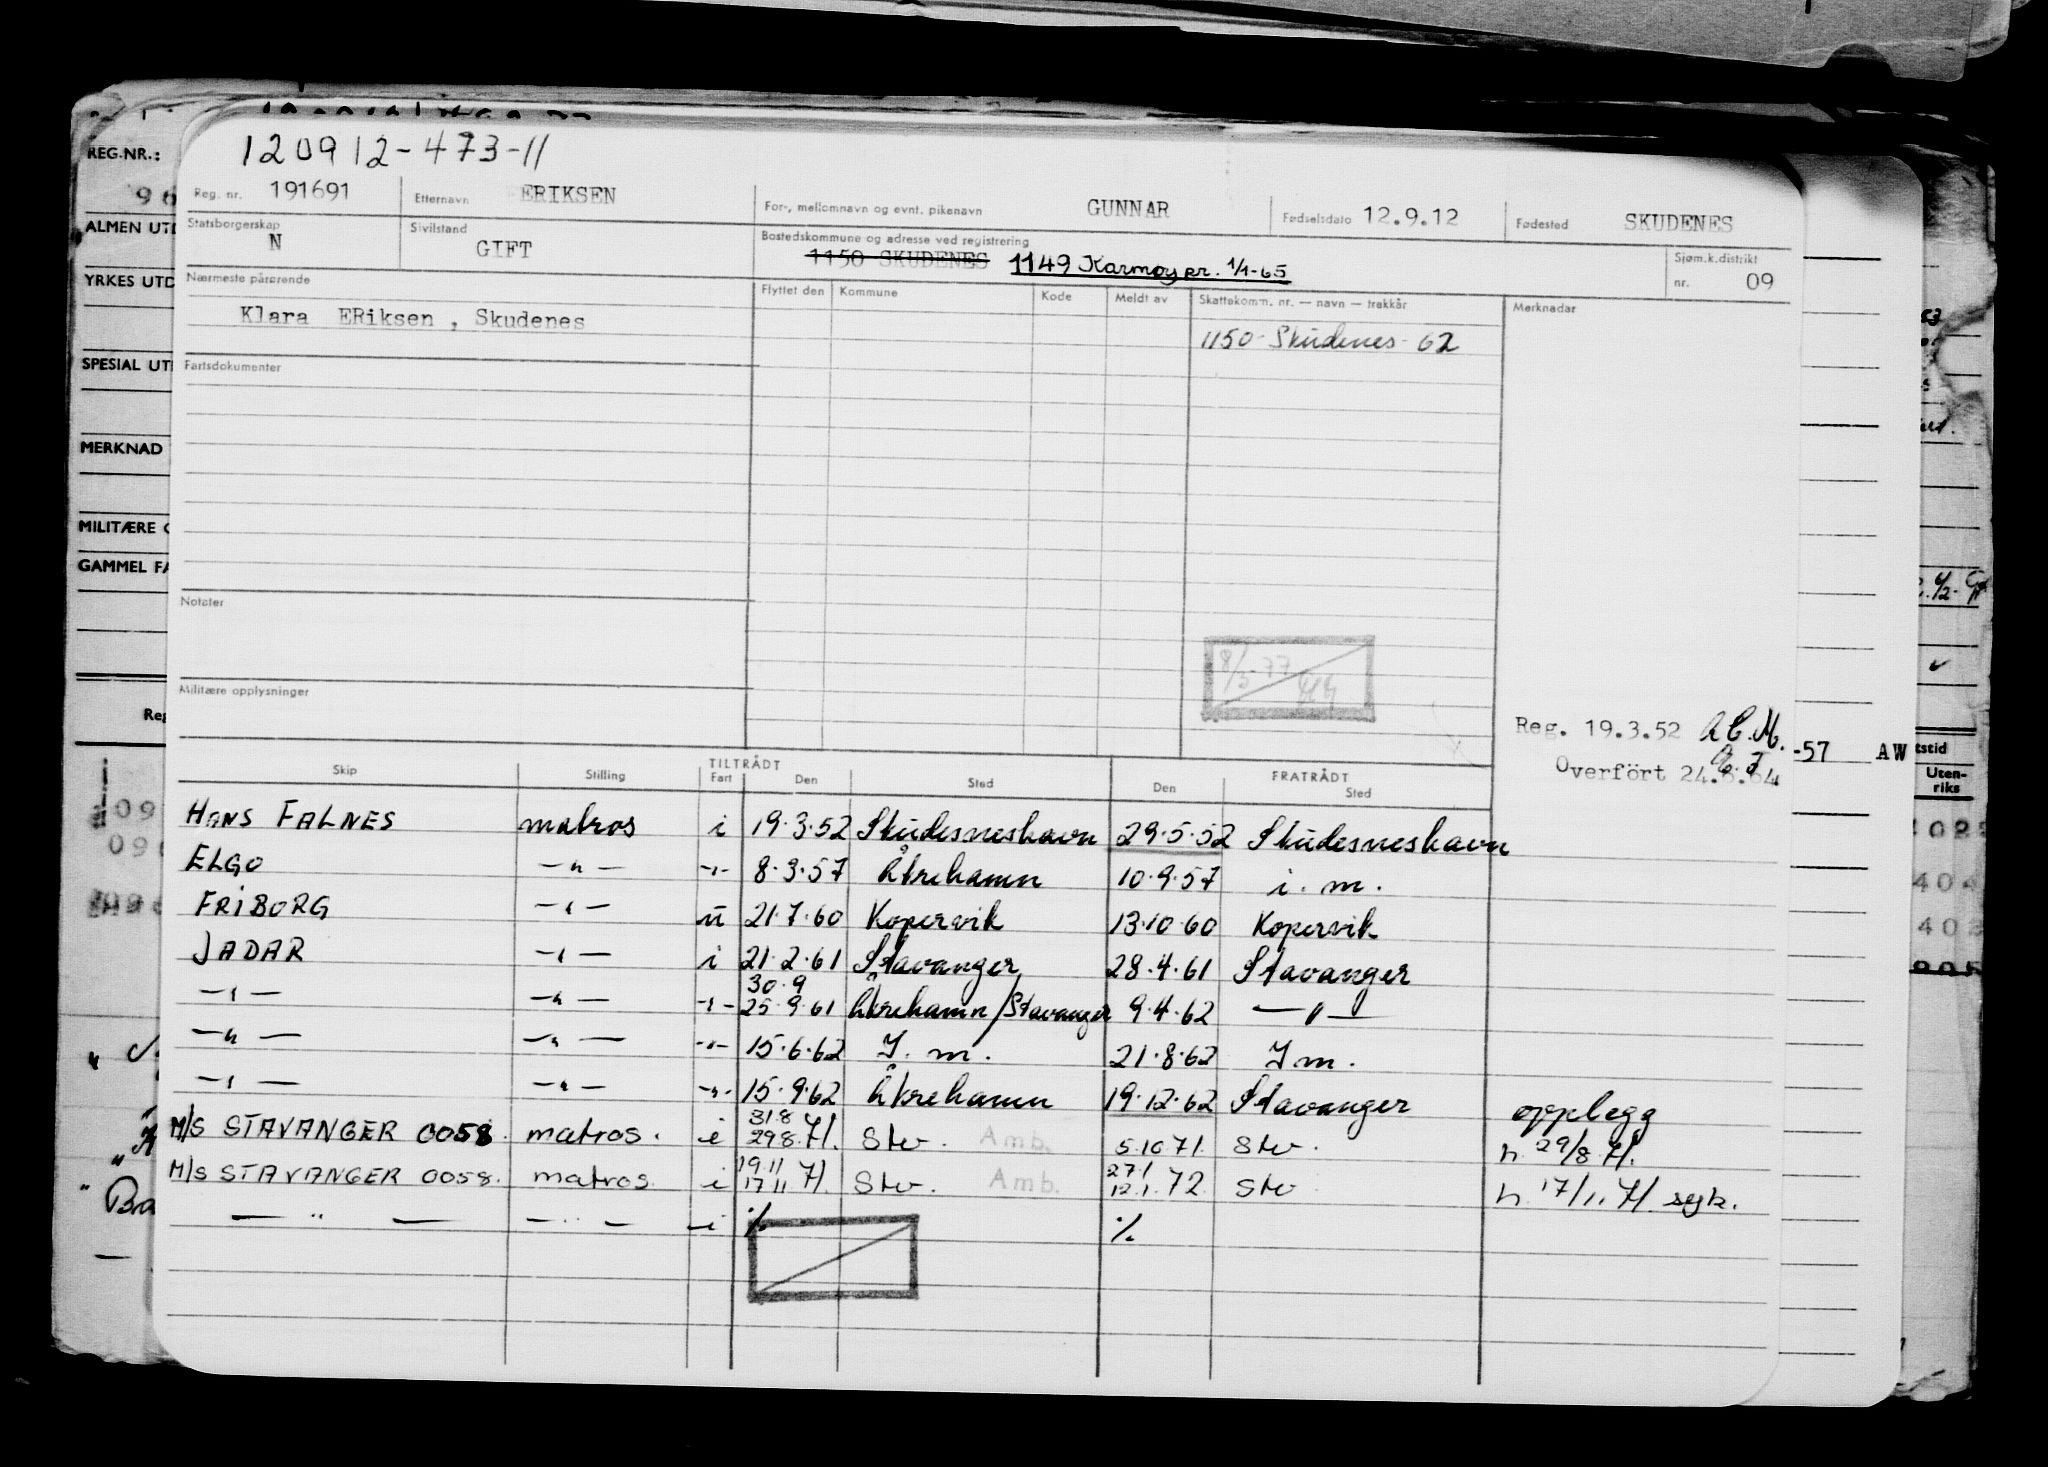 120912-473-11
REG.NR.:
Reg. nr. 191691 Etternavn ERIKSEN For-, mellomnavn og evnt. pikenavn GUNNAR Fødselsdato 12.9.12 Fødested SKUDENES
ALMEN UTD
Statsborgerskap N Sivilstand GIFT Bostedskommune og adresse ved registrering 1150 SKUDENES 1149 Karmøy pr. 1/1-65 Sjøm.k.distrikt nr. 09
YRKES UTD
Nærmeste pårørende Flyttet den Kommune Kode Meldt av Skattekomm. nr. — navn — trekkår Merknadar
Klara ERiksen, Skudenes 1150-Skudenes-62
SPESIAL UTD
Fartsdokumenter
MERKNAD
MILITÆRE
GAMMEL FA
Notater
8/3-77
Militære opplysninger
Reg
Reg. 19.3.52 A.C.M.
-57 AW
Overfört 24.8.64
tstid
Uten-
riks
TILTRÅDT FRATRÅDT
Skip Stilling Fart Den Sted Den Sted
HANS FALNES matros i 19.3.52 Skudesneshavn 29.5.52 Skudesneshavn
ELGO —„— -„- 8.3.57 Åkrehamn 10.9.57 i. m.
FRIBORG —„— u 21.7.60 Kopervik 13.10.60 Kopervik
JADAR —„— i 21.2.61 Stavanger 28.4.61 Stavanger
30.9
—„— —„— -„- 25.9.61 Åkrehamn/Stavanger 9.4.62 —„—
—„— —„— -„- 15.6.62 I. m. 21.8.62 I m.
—„— —„— -„- 15.9.62 Åkrehamn 19.12.62 Stavanger opplegg
31.8
M/S STAVANGER 0058. matros. i 29.8.71. Stv. Amb. 5.10.71. Stv. h. 29/8.71.
19.11 27.1
M/S STAVANGER 0058. matros i 17.11.71. Stv. Amb. 12.1.72 Stv h. 17/11.71. syk.
—„— —„— -i ⁒ ⁒